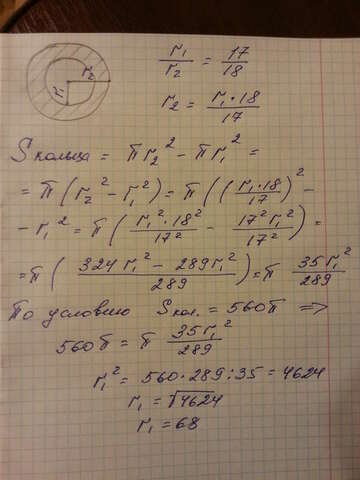 r₂
r₁
r₁/r₂ = 17/18
r₂ = r₁·18/17
Sкольца = πr₂² - πr₁² =
= π(r₂² - r₁²) = π((r₁·18/17)² -
- r₁² = π(r₁²·18²/17² - 17²r₁²/17²) =
= π(324r₁² - 289r₁²/289) = π 35r₁²/289
По условию Sкол. = 560π =>
560π = π 35r₁²/289
r₁² = 560·289:35 = 4624
r₁ = √4624
r₁ = 68